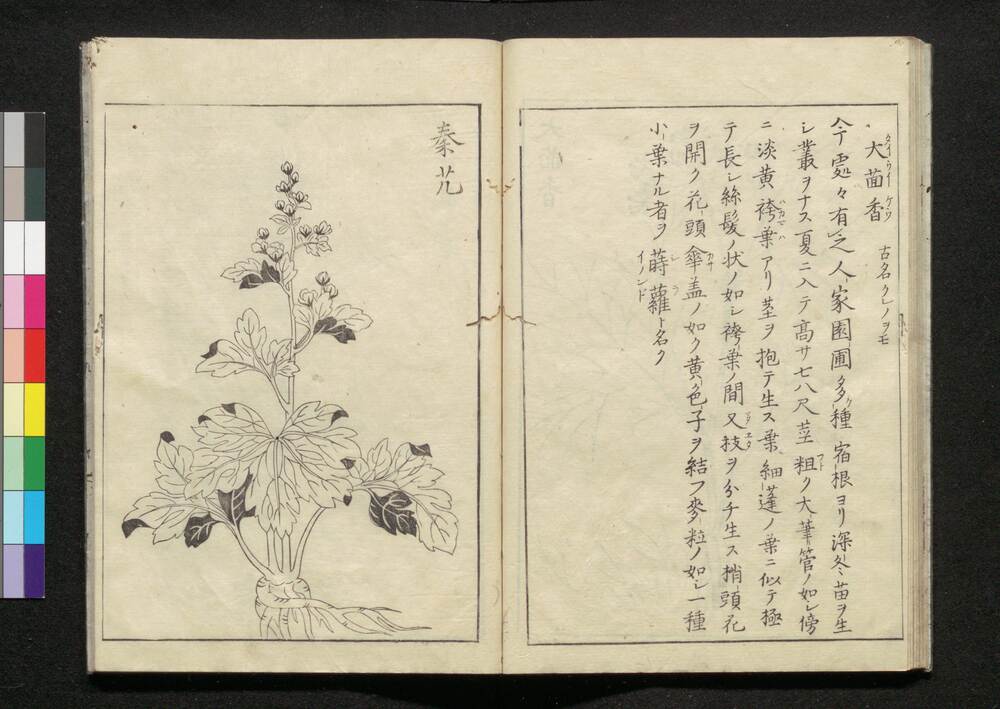 大茴香 古名クレノヲモ
今處々有之人家園圃多ク種宿根ヨリ深冬苗ヲ生
シ叢ヲナス夏ニ入テ高サ七八尺莖粗ク大筆管ノ如シ傍
ニ淡黄袴葉アリ莖ヲ抱テ生ス葉細蓬ノ葉ニ似テ極
テ長シ絲髪ノ状ノ如シ袴葉ノ間又枝ヲ分チ生ス梢頭花
ヲ開ク花頭傘盖ノ如ク黄色子ヲ結フ麥粒ノ如シ一種
小葉ナル者ヲ蒔蘿ト名ク
イノンド
秦艽